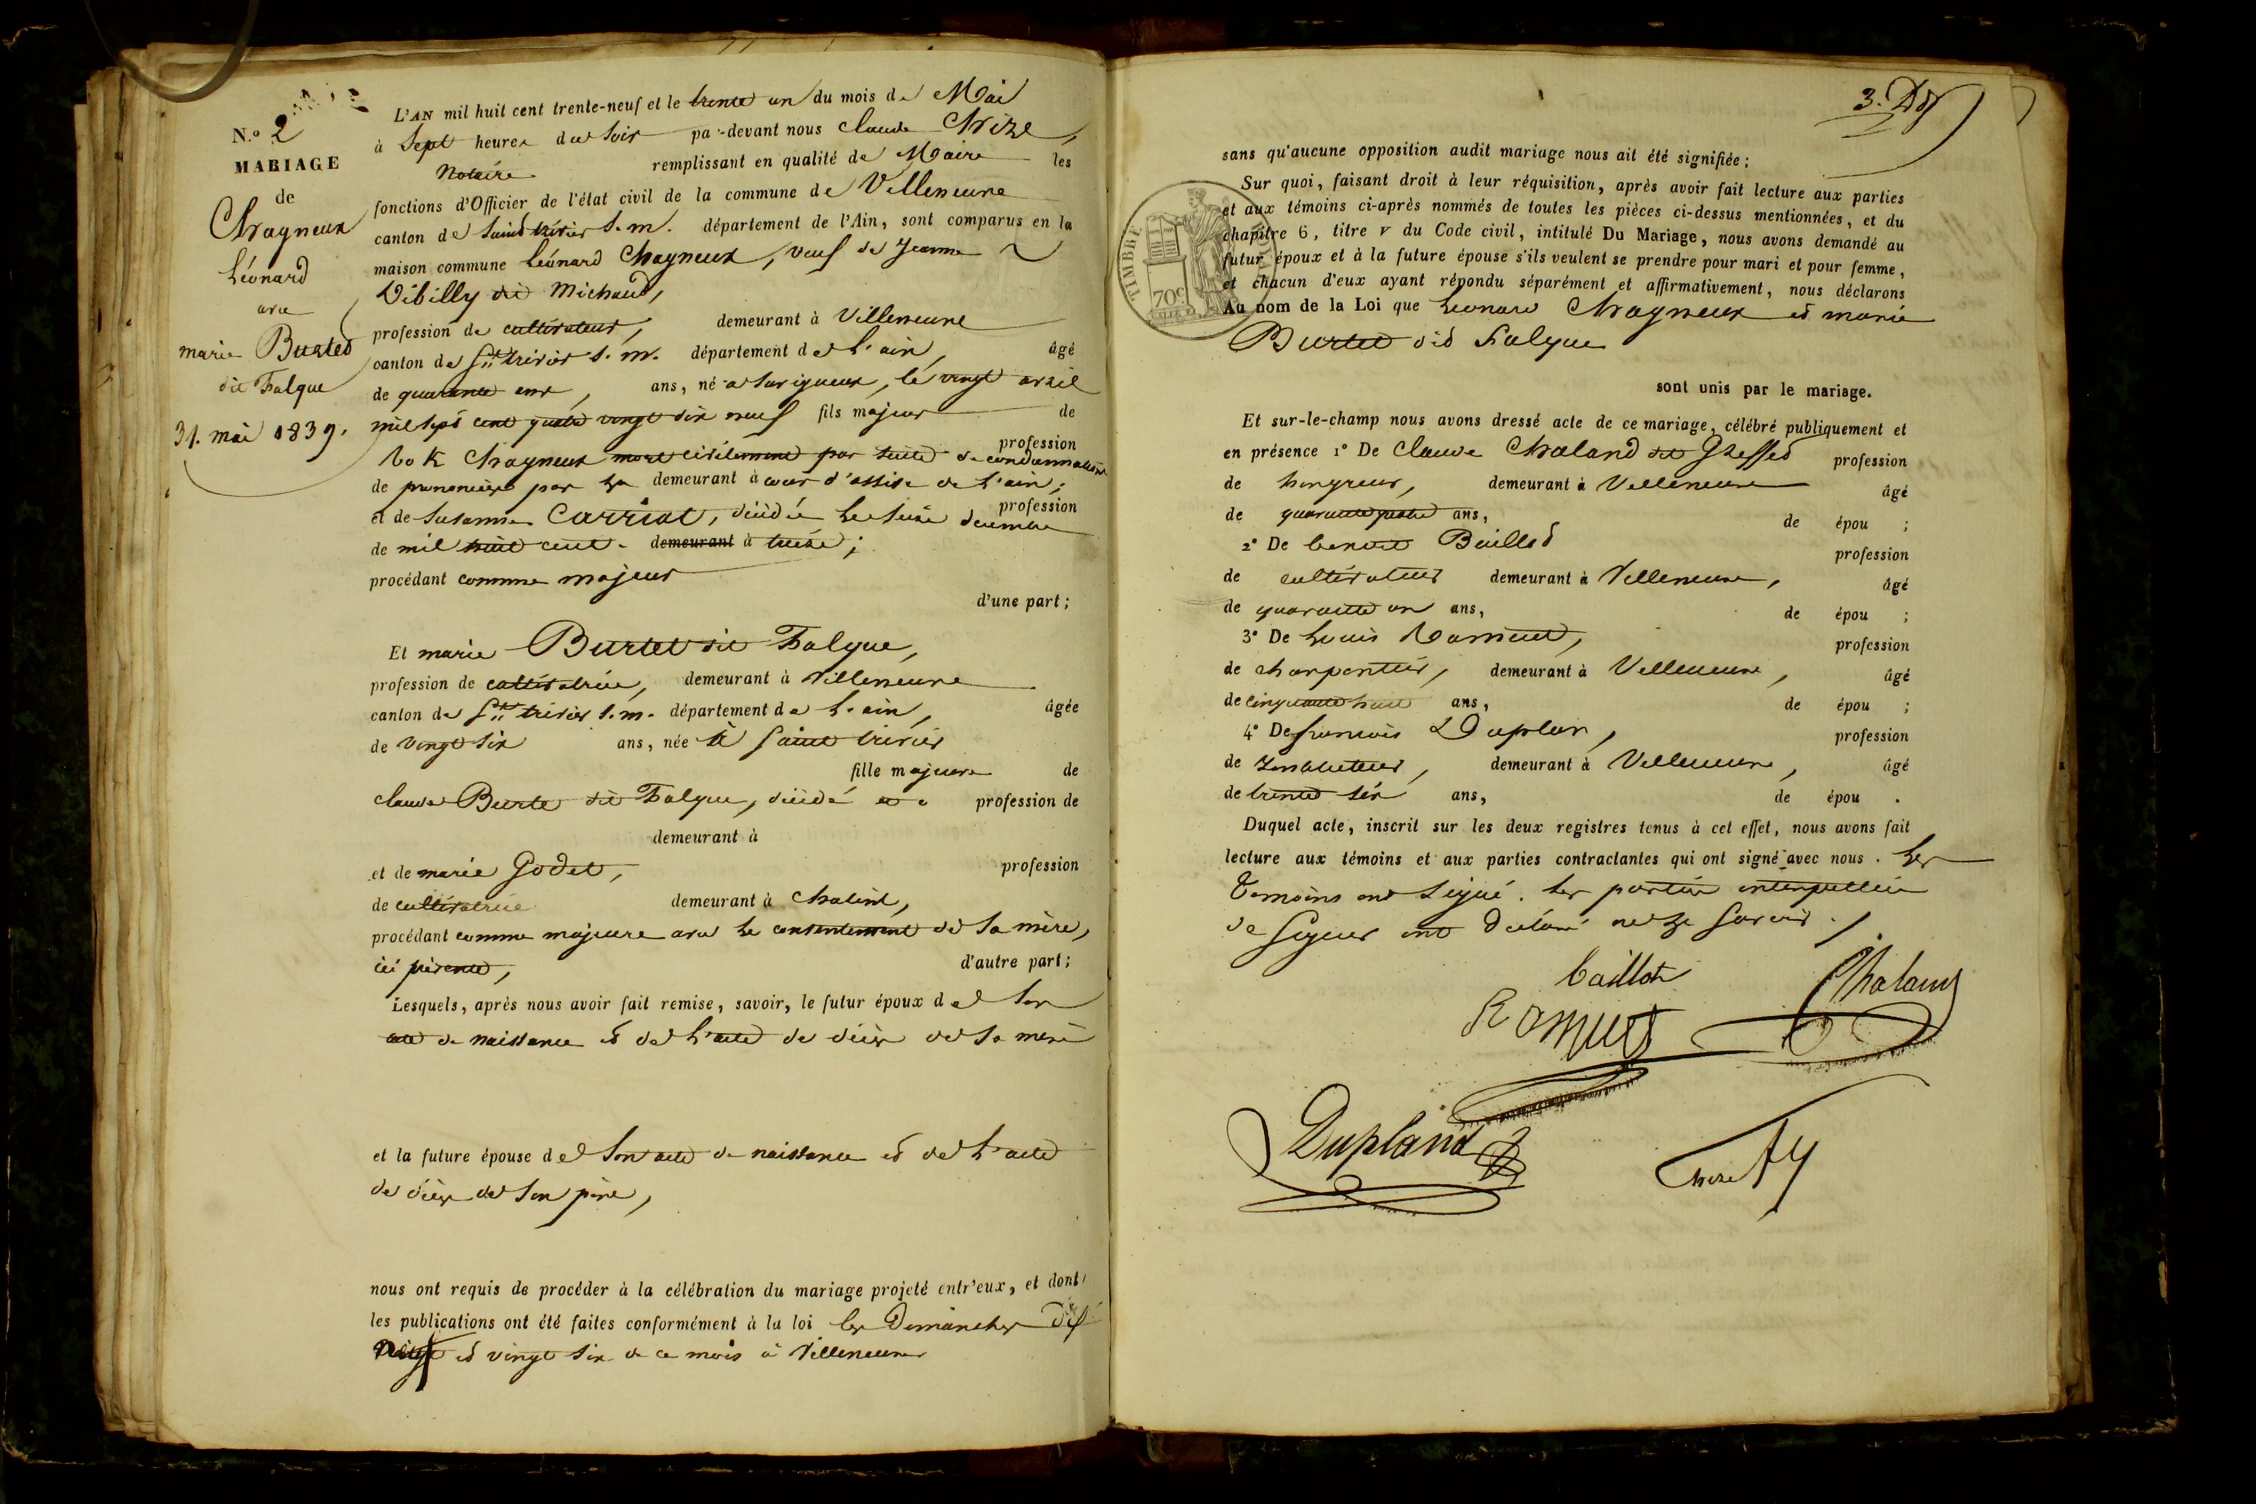 N.o 2
MARIAGE
de
Chagneux
Léonard
avec
marie Burtet
dit Falque
31. mai 1839.
L'AN mil huit cent trente-neuf et le trente un du mois de Mai
à Sept heures du Soir par-devant nous Claude Chize,
Notaire remplissant en qualité de Maire les
fonctions d'Officier de l'état civil de la commune de Villeneuve
canton de Saint trivier s. m. département de l'Ain, sont comparus en la
maison commune Léonard Chagneux, veuf de Jeanne
Vibilly dit Michaud,
profession de cultivateur, demeurant à Villeneuve
canton de St. trivier s. m. département de L'ain, âgé
de quarante ans, ans, né à Savigneux, le vingt avril
mil sept cent quatre vingt dix neuf fils majeur de
Chagneux mort civilement par suite de condamnation profession
de prononcée par la demeurant à cour d'assise de l'ain;
et de Susanne Carriat, décédée le seize décembre profession
de mil huit cent demeurant à treize;
procédant comme majeur
d'une part;
Et marie Burtet dit Falque,
profession de cultivatrice, demeurant à Villeneuve
canton de St. trivier s. m. département de L'ain, âgée
de vingt six ans, née à Saint trivier
fille majeure de
claude Burtet dit Falque, décédé profession de
demeurant à
et de marie Godet, profession
de cultivatrice demeurant à Chaleins,
procédant comme majeure avec le consentement de sa mère,
ici présente, d'autre part;
Lesquels, après nous avoir fait remise, savoir, le futur époux de Son
acte de naissance et de L'acte de décès de sa mère
et la future épouse de Son acte de naissance et de L'acte
de décès de Son père,
nous ont requis de procéder à la célébration du mariage projeté entr'eux, et dont
les publications ont été faites conformément à la loi les Dimanches dix
neuf et vingt six de ce mois à Villeneuve
sans qu'aucune opposition audit mariage nous ait été signifiée;
Sur quoi, faisant droit à leur réquisition, après avoir fait lecture aux parties
et aux témoins ci-après nommés de toutes les pièces ci-dessus mentionnées, et du
chapitre 6, titre v du Code civil, intitulé Du Mariage, nous avons demandé au
futur époux et à la future épouse s'ils veulent se prendre pour mari et pour femme,
et chacun d'eux ayant répondu séparément et affirmativement, nous déclarons
Au nom de la Loi que Léonard Chagneux et marie
Burtet dit Falque
sont unis par le mariage.
TIMBRE
70c
Et sur-le-champ nous avons dressé acte de ce mariage, célébré publiquement et
en présence 1° De Claude Chaland dit Greffet profession
de hongreur, demeurant à Villeneuve âgé
de quarante quatre ans, de épou ;
2° De benoit Baillot profession
de cultivateur demeurant à Villeneuve, âgé
de quarante un ans, de épou ;
3° De Louis Ramuet, profession
de charpentier, demeurant à Villeneuve, âgé
de cinquante huit ans, de épou ;
4° De francois Duplan, profession
de Instituteur, demeurant à Villeneuve, âgé
de trente six ans, de épou .
Duquel acte, inscrit sur les deux registres tenus à cet effet, nous avons fait
lecture aux témoins et aux parties contractantes qui ont signé avec nous. Les
Témoins ont signé. Les parties interpellées
de signer ont déclaré ne le savoir.
baillot
Chaland
Ramuet
Dupland
Chize